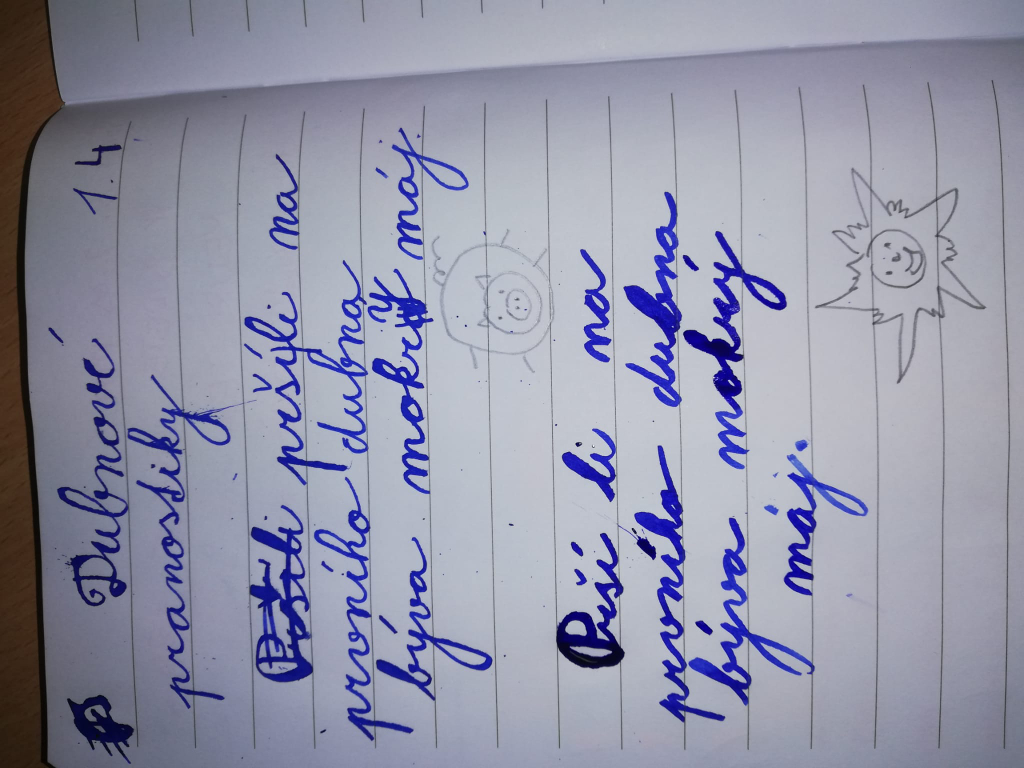 Dubnové 1.4
pranostiky
pršíli na
prvního dubna
býva mokrý máj.
Prší li na
prvního dubna
býva mokrý
máj.